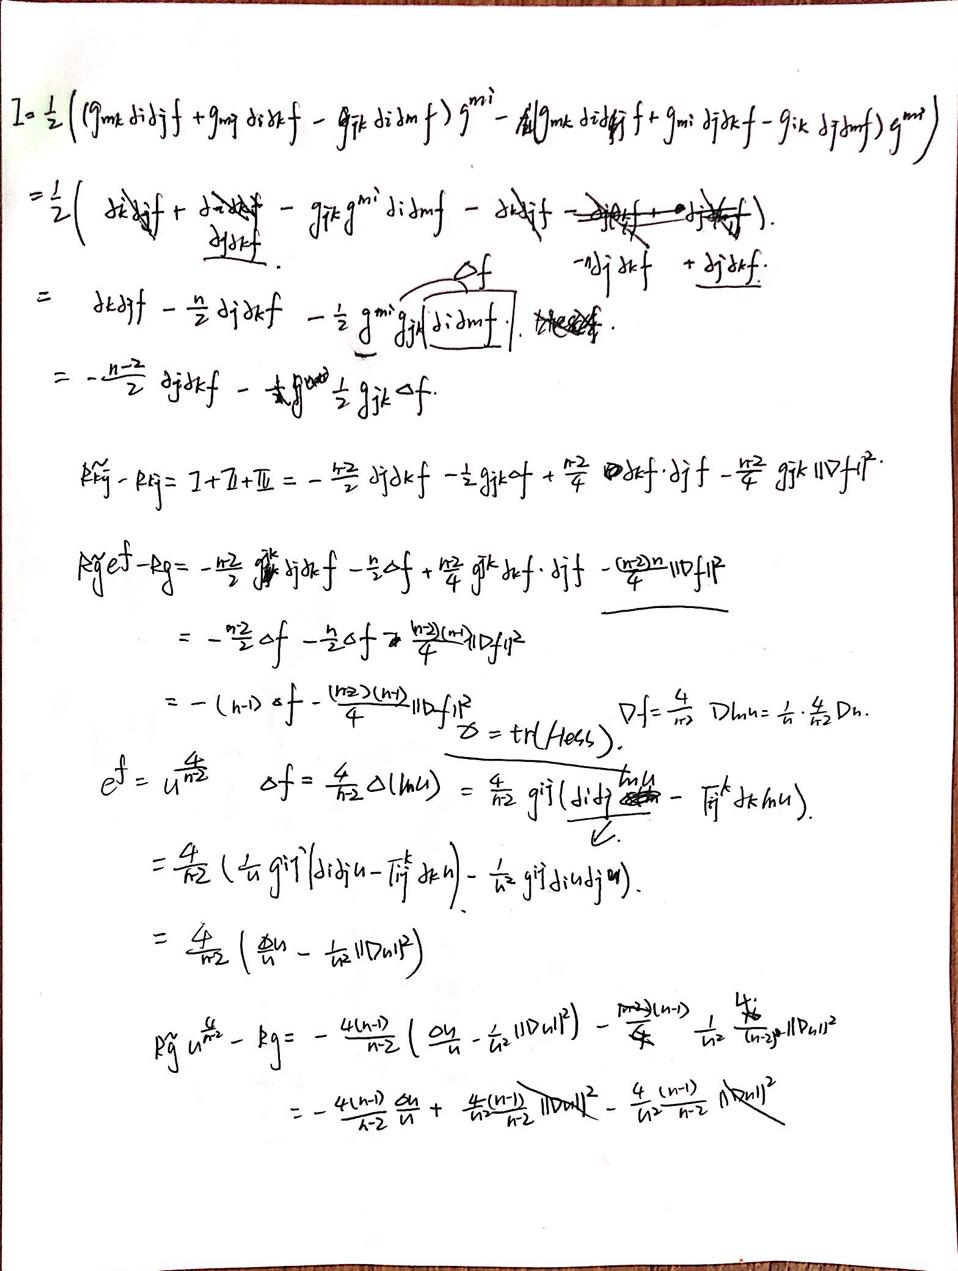 I = 1/2 ((g_mk ∂i∂jf + g_mj ∂i∂kf − g_jk ∂i∂mf) g^mi − (g_mk ∂i∂jf + g_mi ∂j∂kf − g_ik ∂j∂mf) g^mi)
= 1/2 ( ∂k∂jf + ∂i∂kf − g_jk g^mi ∂i∂mf − ∂k∂jf − ∂j∂kf + ∂j∂kf ).
∂j∂kf . −n∂j∂kf + ∂j∂kf.
Δf
= ∂k∂jf − n/2 ∂j∂kf − 1/2 g^mi g_jk ∂i∂mf .
= − (n−2)/2 ∂j∂kf − 1/2 g_jk Δf.
R̃kj − Rkj = I + II + III = − (n−2)/2 ∂j∂kf − 1/2 g_jk Δf + (n−2)/4 ∂kf·∂jf − (n−2)/4 g_jk ||Df||².
Rg̃ e^f − Rg = − (n−2)/2 g^jk ∂j∂kf − n/2 Δf + (n−2)/4 g^jk ∂kf·∂jf − (n−2)n/4 ||Df||²
= − (n−2)/2 Δf − n/2 Δf − (n−2)(n−1)/4 ||Df||²
= −(n−1) Δf − (n−2)(n−1)/4 ||Df||²
Δ = tr(Hess). Df = 4/(n−2) D ln u = 1/u · 4/(n−2) Du.
e^f = u^(4/(n−2)) Δf = 4/(n−2) Δ(ln u) = 4/(n−2) g^ij (∂i∂j ln u − Γij^k ∂k ln u).
= 4/(n−2) (1/u g^ij (∂i∂ju − Γij^k ∂ku) − 1/u² g^ij ∂iu∂ju).
= 4/(n−2) (Δu/u − 1/u² ||Du||²)
Rg̃ u^(4/(n−2)) − Rg = − 4(n−1)/(n−2) (Δu/u − 1/u² ||Du||²) − (n−2)(n−1)/4 1/u² 4·/(n−2)² ||Du||²
= − 4(n−1)/(n−2) Δu/u + 4/u² (n−1)/(n−2) ||Du||² − 4/u² (n−1)/(n−2) ||Du||²